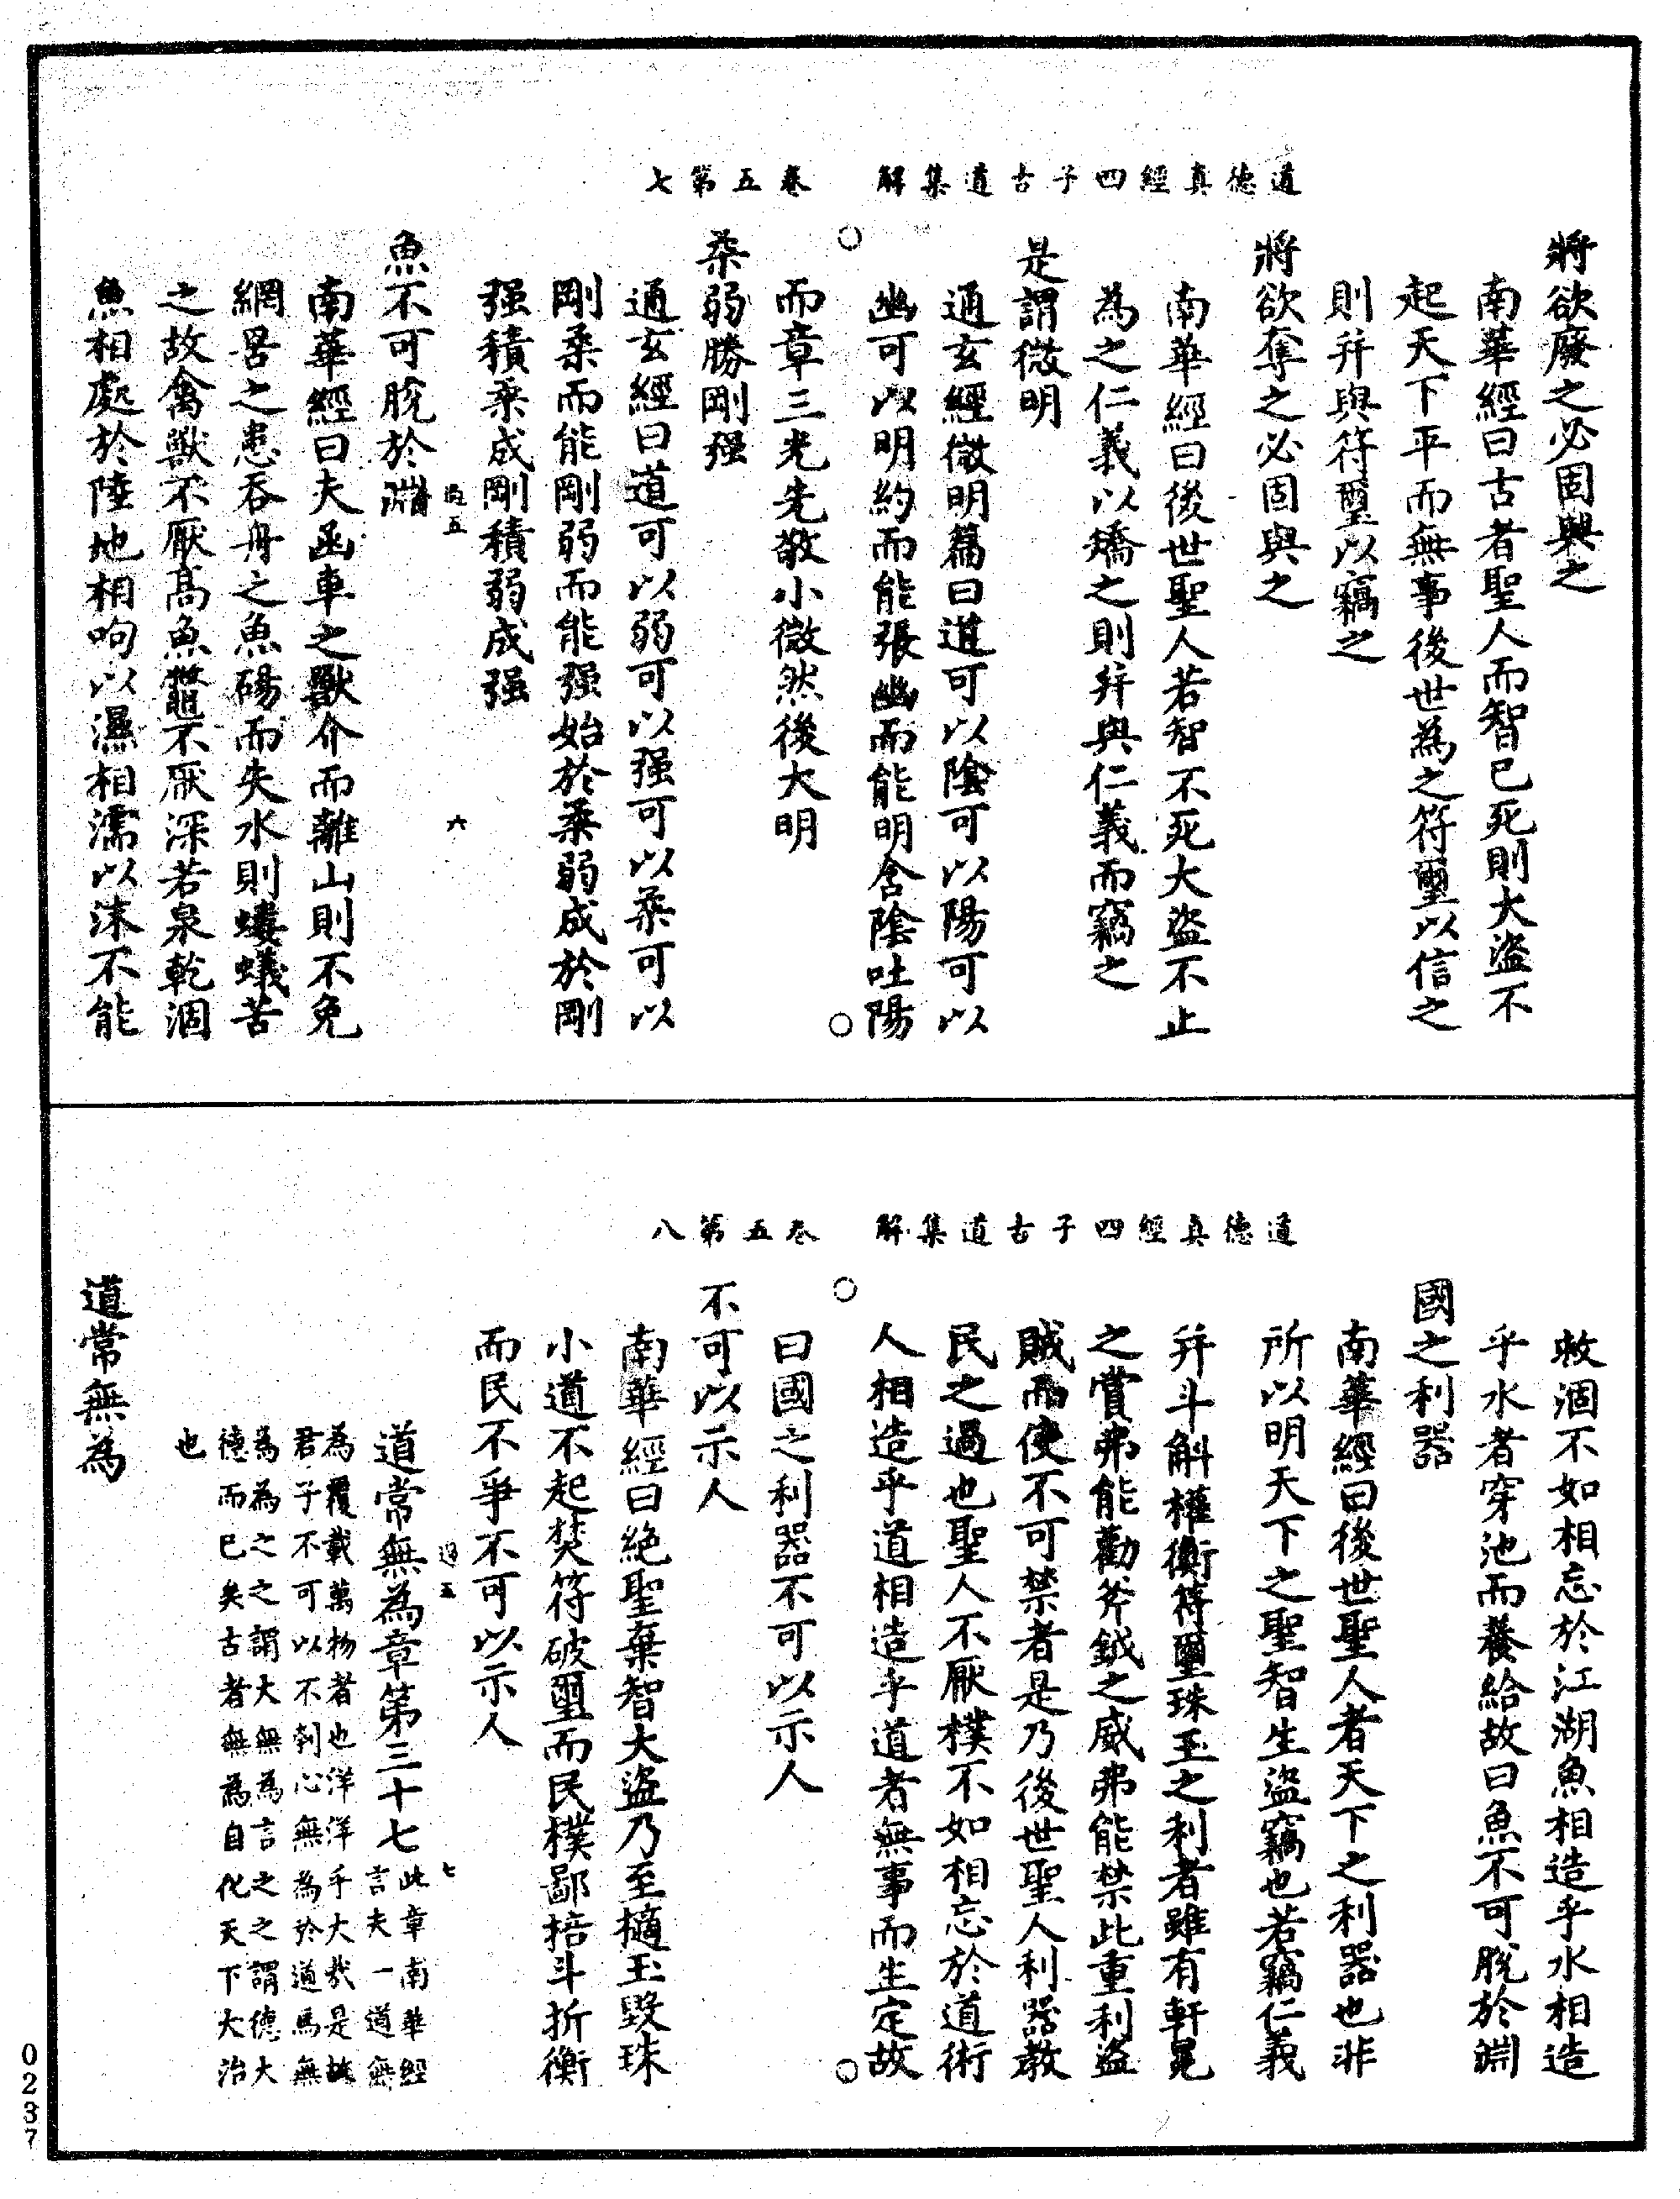 道德真經四子古道集解　卷五第七
將欲廢之必固興之
南華經曰古者聖人而智已死則大盜不
起天下平而無事後世為之符璽以信之
則并與符璽以竊之
將欲奪之必固與之
南華經曰後世聖人若智不死大盜不止
為之仁義以矯之則并與仁義而竊之
是謂微明
通玄經微明篇曰道可以陰可以陽可以
幽可以明約而能張幽而能明含陰吐陽
而章三光先敬小微然後大明
柔弱勝剛强
通玄經曰道可以弱可以强可以柔可以
剛柔而能剛弱而能强始於柔弱成於剛
强積柔成剛積弱成强
過五　六
魚不可脫於淵
南華經曰夫函車之獸介而離山則不免
網罟之患吞舟之魚碭而失水則螻蟻苦
之故禽獸不厭高魚鼈不厭深若泉乾涸
魚相處於陸地相呴以濕相濡以沫不能
道德真經四子古道集解　卷五第八
救涸不如相忘於江湖魚相造乎水相造
乎水者穿池而養給故曰魚不可脫於淵
國之利器
南華經曰後世聖人者天下之利器也非
所以明天下之聖智生盜竊也若竊仁義
并斗斛權衡符璽珠玉之利者雖有軒冕
之賞弗能勸斧鉞之威弗能禁此重利盜
賊而使不可禁者是乃後世聖人利器教
民之過也聖人不厭樸不如相忘於道術
人相造乎道相造乎道者無事而生定故
曰國之利器不可以示人
不可以示人
南華經曰絶聖棄智大盜乃至擿玉毀珠
小道不起焚符破璽而民樸鄙掊斗折衡
而民不爭不可以示人
過五　七
道常無為章第三十七此章南華經
言夫一道無
為覆載萬物者也洋洋乎大哉是故
君子不可以不刳心無為於道焉無
為為之之謂大無為言之之謂德大
德而已矣古者無為自化天下大治
也
道常無為
0237